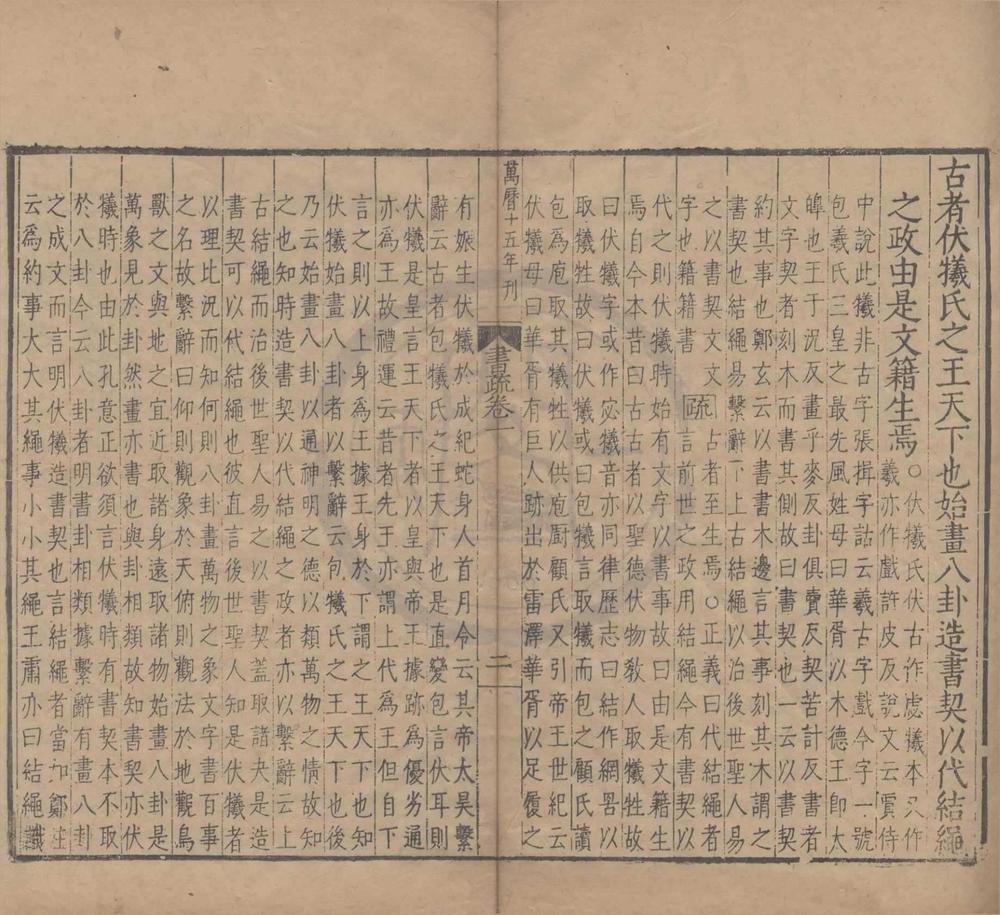 古者伏犧氏之王天下也始畫八卦造書契以代結繩
之政由是文籍生焉
〇伏犧氏伏古作虙犧本又作
羲亦作戲許皮反說文云賈侍
中說此犧非古字張揖字詁云羲古字戲今字一號
包羲氏三皇之最先風姓母曰華胥以木德王即太
皥也王于況反畫乎麥反卦俱賣反契苦計反書者
文字契者刻木而書其側故曰書契也一云以書契
約其事也鄭玄云以書書木邊言其事刻其木謂之
書契也結繩易繫辭丅上古結繩以治後世聖人易
之以書契文文
字也籍籍書
疏
古者至生焉〇正義曰代結繩者
言前世之政用結繩今有書契以
代之則伏犧時始有文字以書事故曰由是文籍生
焉自今本昔曰古古者以聖德伏物教人取犧牲故
曰伏犧字或作宓犧音亦同律歷志曰結作網罟以
取犧牲故曰伏犧或曰包犧言取犧而包之顧氏讀
包爲庖取其犧牲以供庖厨顧氏又引帝王世紀云
伏犧母曰華胥有巨人跡出於雷澤華胥以足履之
萬曆十五年刊
書疏卷一
二
有娠生伏犧於成紀蛇身人首月令云其帝太昊繫
辭云古者包犧氏之王天下也是直變包言伏耳則
伏犧是皇言王天下者以皇與帝王據跡爲優劣通
亦爲王故禮運云昔者先王亦謂上代爲王但自下
言之則以上身爲王據王身於下謂之王天下也知
伏犧始畫八卦者以繫辭云包犧氏之王天下也後
乃云始畫八卦以通神明之德以類萬物之情故知
之也知時造書契以代結繩之政者亦以繫辭云上
古結繩而治後世聖人易之以書契蓋取諸夬是造
書契可以代結繩也彼直言後世聖人知是伏犧者
以理比況而知何則八卦畫萬物之象文字書百事
之名故繫辭曰仰則觀象於天俯則觀法於地觀鳥
獸之文與地之宜近取諸身遠取諸物始畫八卦是
萬象見於卦然畫亦書也與卦相類故知書契亦伏
犧時也由此孔意正欲須言伏犧時有書契本不取
於八卦今云八卦者明書卦相類據繫辭有畫八卦
之成文而言明伏犧造書契也言結繩者當如鄭注
云爲約事大大其繩事小小其繩王肅亦曰結繩識